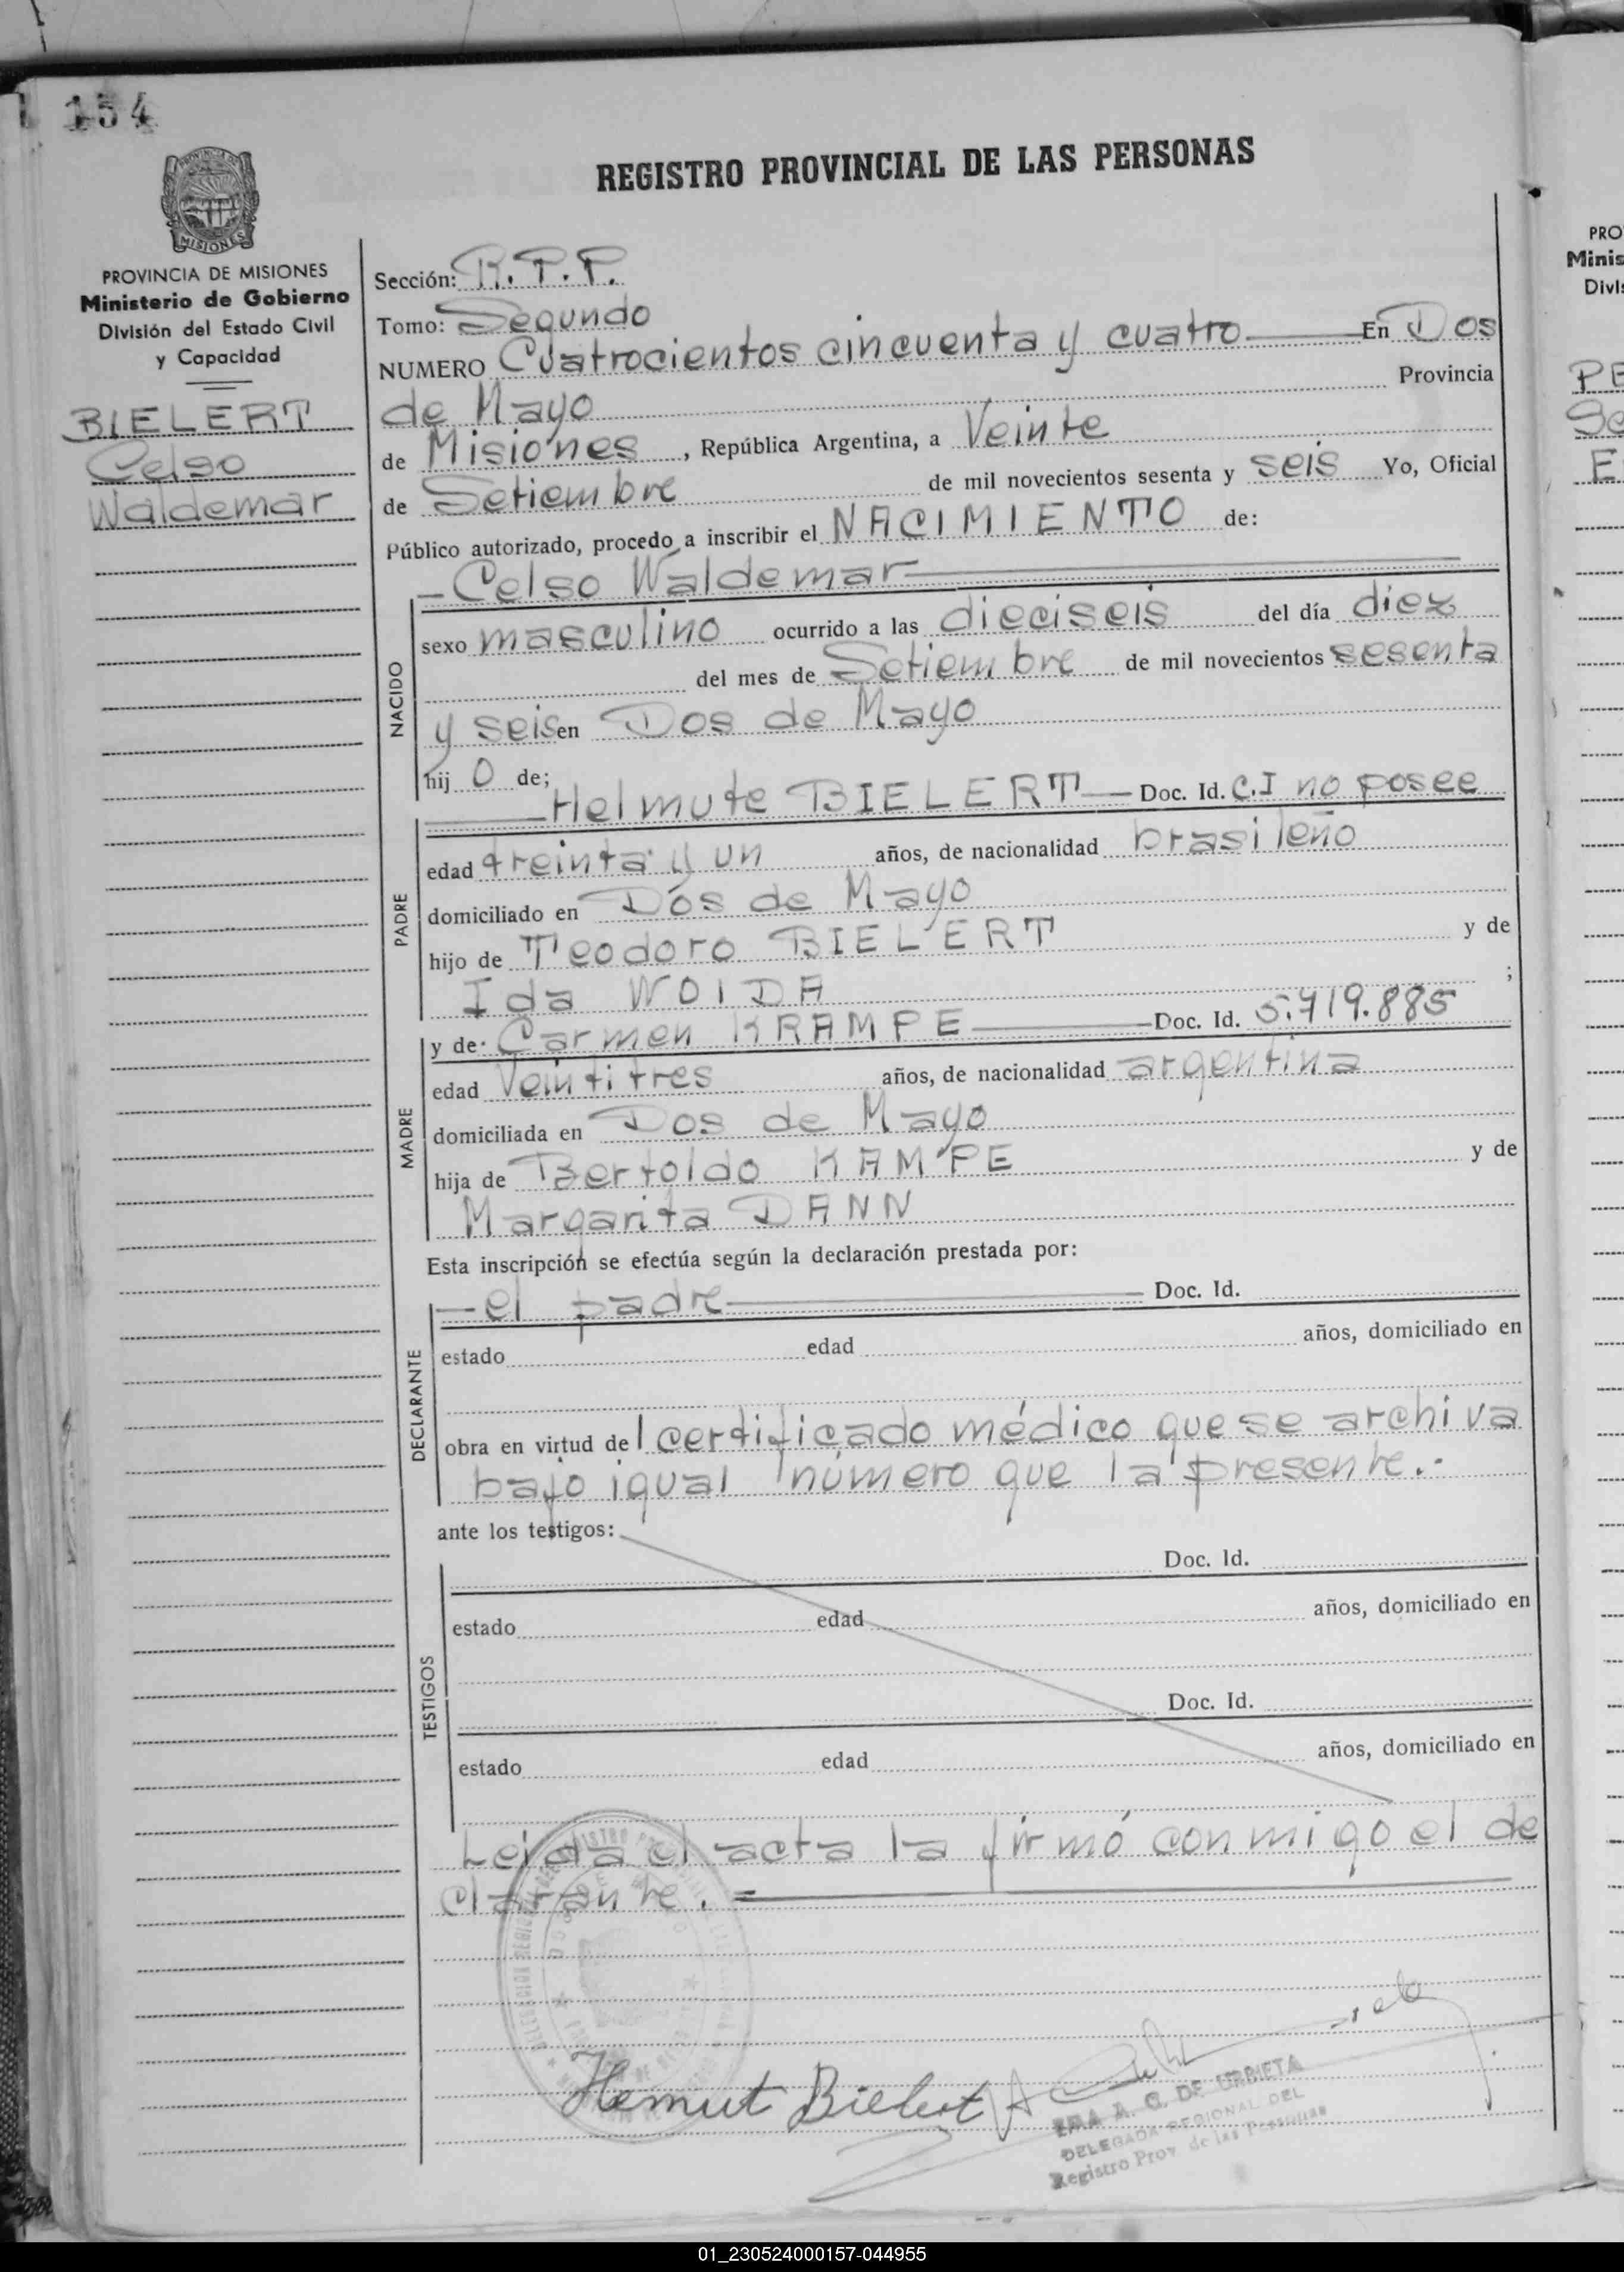 154
REGISTRO PROVINCIAL DE LAS PERSONAS
PROVINCIA DE
MISIONES
PROVINCIA DE MISIONES
Ministerio de Gobierno
División del Estado Civil
y Capacidad
BIELERT
Celso
Waldemar
Sección: R.P.P.
Tomo: Segundo
NUMERO Cuatrocientos cincuenta y cuatro En Dos
de Mayo Provincia
de Misiones, República Argentina, a Veinte
de Setiembre de mil novecientos sesenta y seis Yo, Oficial
Público autorizado, procedo a inscribir el NACIMIENTO de:
Celso Waldemar
NACIDO
sexo masculino ocurrido a las dieciseis del día diez
del mes de Setiembre de mil novecientos sesenta
y seis en Dos de Mayo
hij o de;
Helmute BIELERT Doc. Id. C.I no posee
PADRE
edad treinta y un años, de nacionalidad brasileño
domiciliado en Dos de Mayo
hijo de Teodoro BIELERT y de
Ida WOIDA ;
y de Carmen KRAMPE Doc. Id. 5.719.885
MADRE
edad Veintitres años, de nacionalidad argentina
domiciliada en Dos de Mayo
hija de Bertoldo KAMPE y de
Margarita DANN
Esta inscripción se efectúa según la declaración prestada por:
el padre Doc. Id.
DECLARANTE
estado edad años, domiciliado en
obra en virtud del certificado médico que se archiva
bajo igual número que la presente.-
ante los testigos:
Doc. Id.
TESTIGOS
estado edad años, domiciliado en
Doc. Id.
estado edad años, domiciliado en
Leida el acta la firmó conmigo el de
clarante.=
Hemut Bielert
A. C. DE URBIETA
DELEGADA REGIONAL DEL
Registro Prov. de las Personas
PRO
Minis
Divi
PE
Se
E
01_230524000157-044955